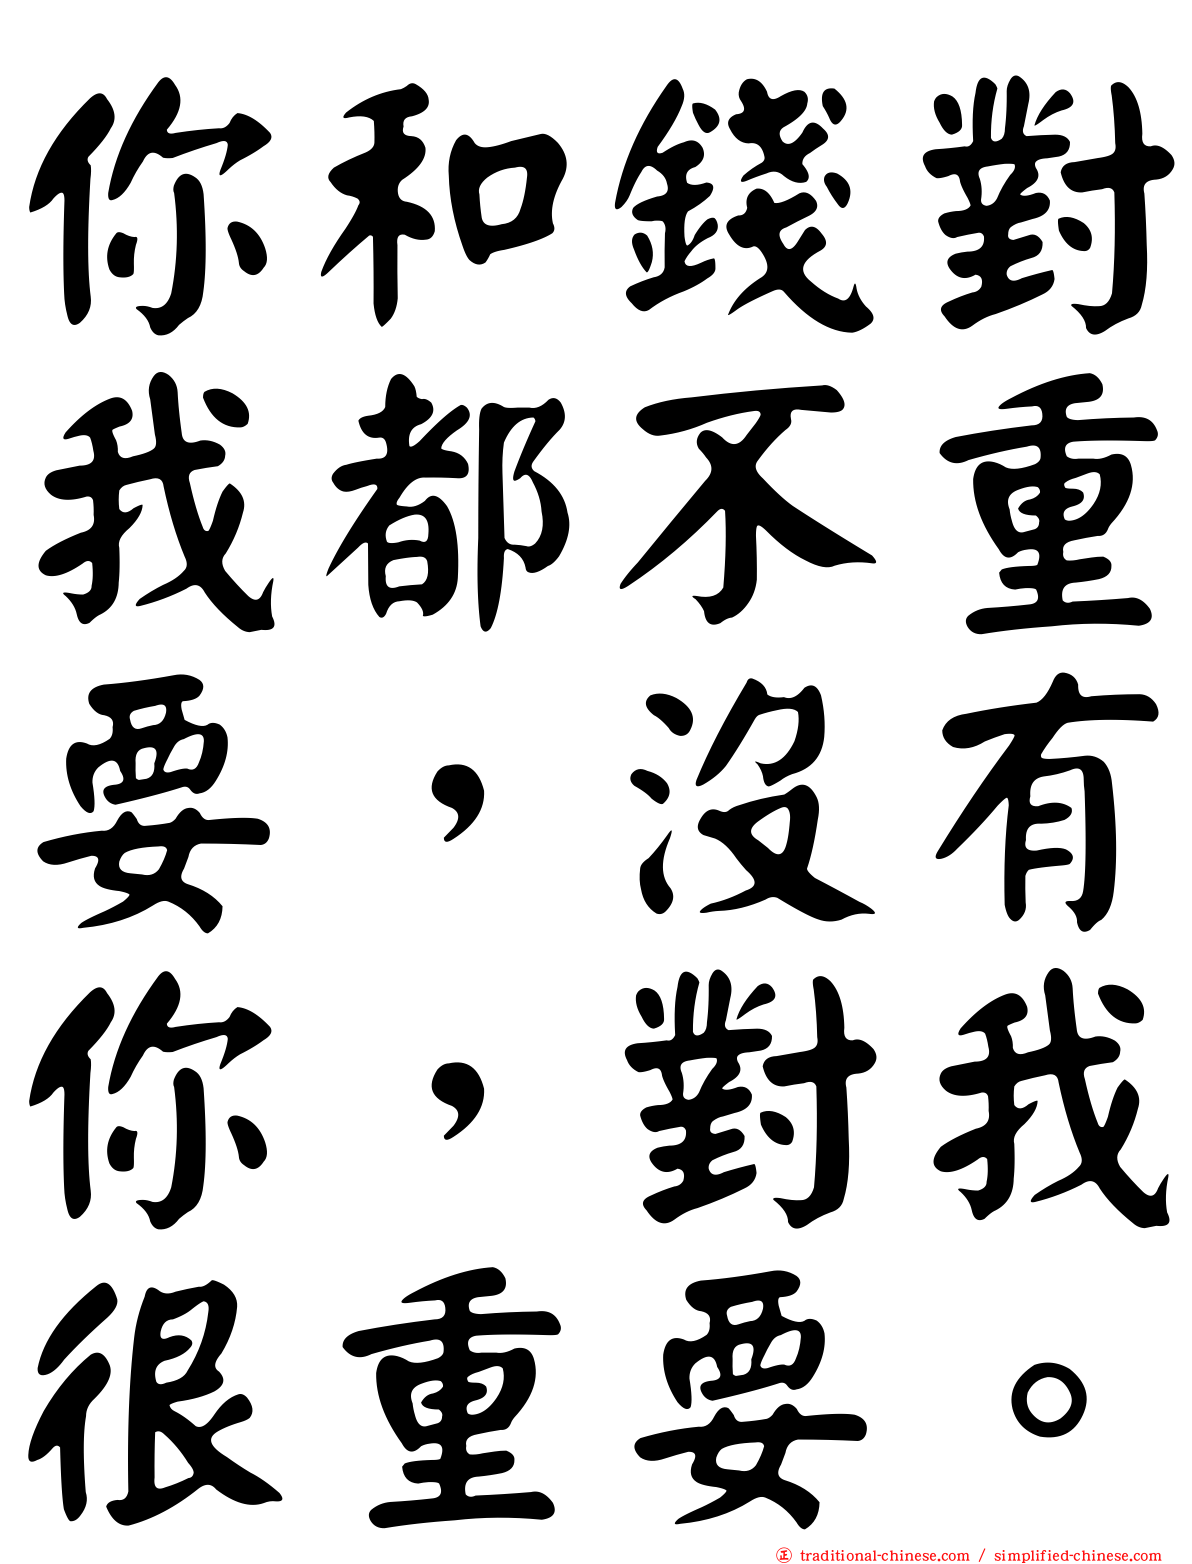 你和錢對
我都不重
要，沒有
你，對我
很重要。
正 traditional-chinese.com / simplified-chinese.com